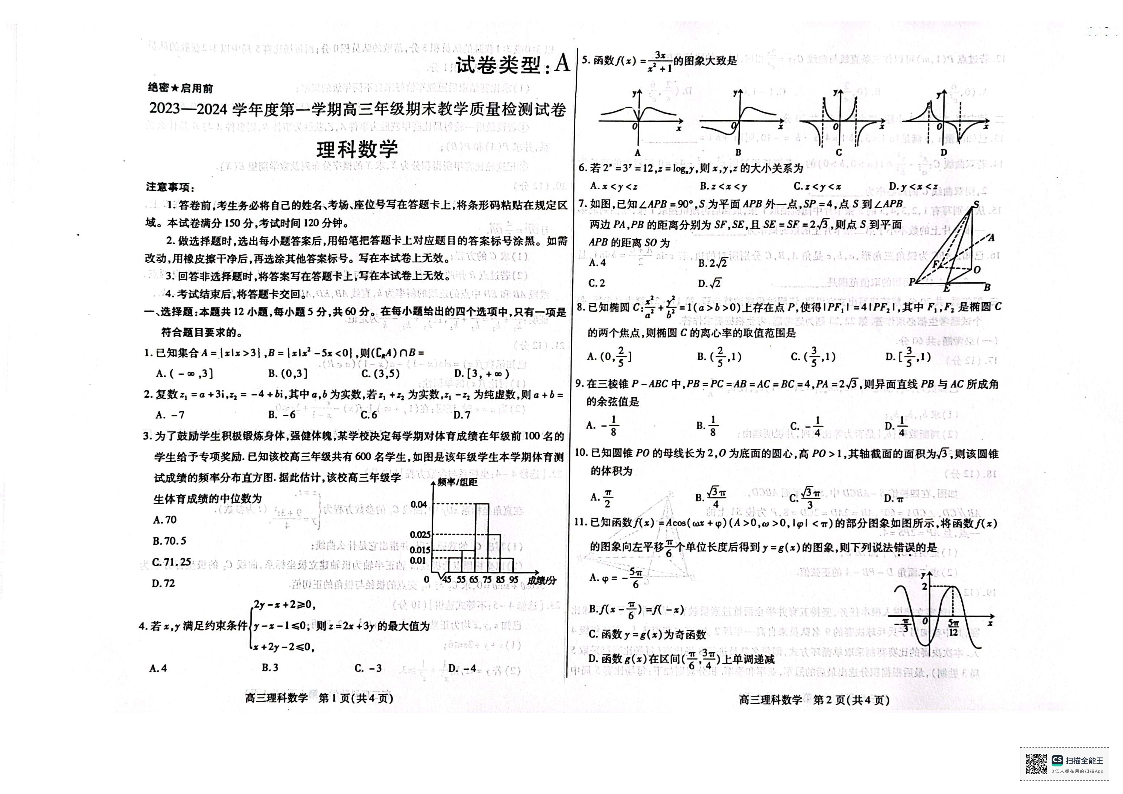 试卷类型:A
绝密★启用前
2023—2024学年度第一学期高三年级期末教学质量检测试卷
理科数学
注意事项:
1.答卷前,考生务必将自己的姓名、考场、座位号写在答题卡上,将条形码粘贴在规定区
域。本试卷满分150分,考试时间120分钟。
2.做选择题时,选出每小题答案后,用铅笔把答题卡上对应题目的答案标号涂黑。如需
改动,用橡皮擦干净后,再选涂其他答案标号。写在本试卷上无效。
3.回答非选择题时,将答案写在答题卡上,写在本试卷上无效。
4.考试结束后,将答题卡交回。
一、选择题:本题共12小题,每小题5分,共60分。在每小题给出的四个选项中,只有一项是
符合题目要求的。
1.已知集合A={x|x>3},B={x|x²-5x<0},则(∁RA)∩B=
A.(-∞,3] B.(0,3] C.(3,5) D.[3,+∞)
2.复数z₁=a+3i,z₂=-4+bi,其中a,b为实数,若z₁+z₂为实数,z₁-z₂为纯虚数,则a+b=
A.-7 B.-6 C.6 D.7
3.为了鼓励学生积极锻炼身体,强健体魄,某学校决定每学期对体育成绩在年级前100名的
学生给予专项奖励.已知该校高三年级共有600名学生,如图是该年级学生本学期体育测
试成绩的频率分布直方图.据此估计,该校高三年级学
生体育成绩的中位数为
A.70
B.70.5
C.71.25
D.72
频率/组距
0.04
0.025
0.015
0.01
0 45 55 65 75 85 95 成绩/分
4.若x,y满足约束条件{2y-x+2≥0,
y-x-1≤0;则z=2x+3y的最大值为
x+2y-2≤0,
A.4 B.3 C.-3 D.-4
高三理科数学 第1页(共4页)
5.函数f(x)=3x/(x²+1)的图象大致是
y y y y
0 x 0 x 0 x 0 x
A B C D
6.若2ˣ=3ʸ=12,z=logₓy,则x,y,z的大小关系为
A.x<y<z B.z<x<y C.z<y<x D.y<x<z
7.如图,已知∠APB=90°,S为平面APB外一点,SP=4,点S到∠APB
两边PA,PB的距离分别为SF,SE,且SE=SF=2√3,则点S到平面
APB的距离SO为
A.4 B.2√2
C.2 D.√2
S
A
F
O
P E B
8.已知椭圆C:x²/a²+y²/b²=1(a>b>0)上存在点P,使得|PF₁|=4|PF₂|,其中F₁,F₂是椭圆C
的两个焦点,则椭圆C的离心率的取值范围是
A.(0,2/5] B.(2/5,1) C.(3/5,1) D.[3/5,1)
9.在三棱锥P-ABC中,PB=PC=AB=AC=BC=4,PA=2√3,则异面直线PB与AC所成角
的余弦值是
A.-1/8 B.1/8 C.-1/4 D.1/4
10.已知圆锥PO的母线长为2,O为底面的圆心,高PO>1,其轴截面的面积为√3,则该圆锥
的体积为
A.π/2 B.√3π/4 C.√3π/3 D.π
11.已知函数f(x)=Acos(ωx+φ)(A>0,ω>0,|φ|<π)的部分图象如图所示,将函数f(x)
的图象向左平移π/6个单位长度后得到y=g(x)的图象,则下列说法错误的是
A.φ=-5π/6
B.f(x-π/6)=f(-x)
C.函数y=g(x)为奇函数
D.函数g(x)在区间(π/6,3π/4)上单调递减
y
2
-π/3 0 5π/12 x
高三理科数学 第2页(共4页)
CS 扫描全能王